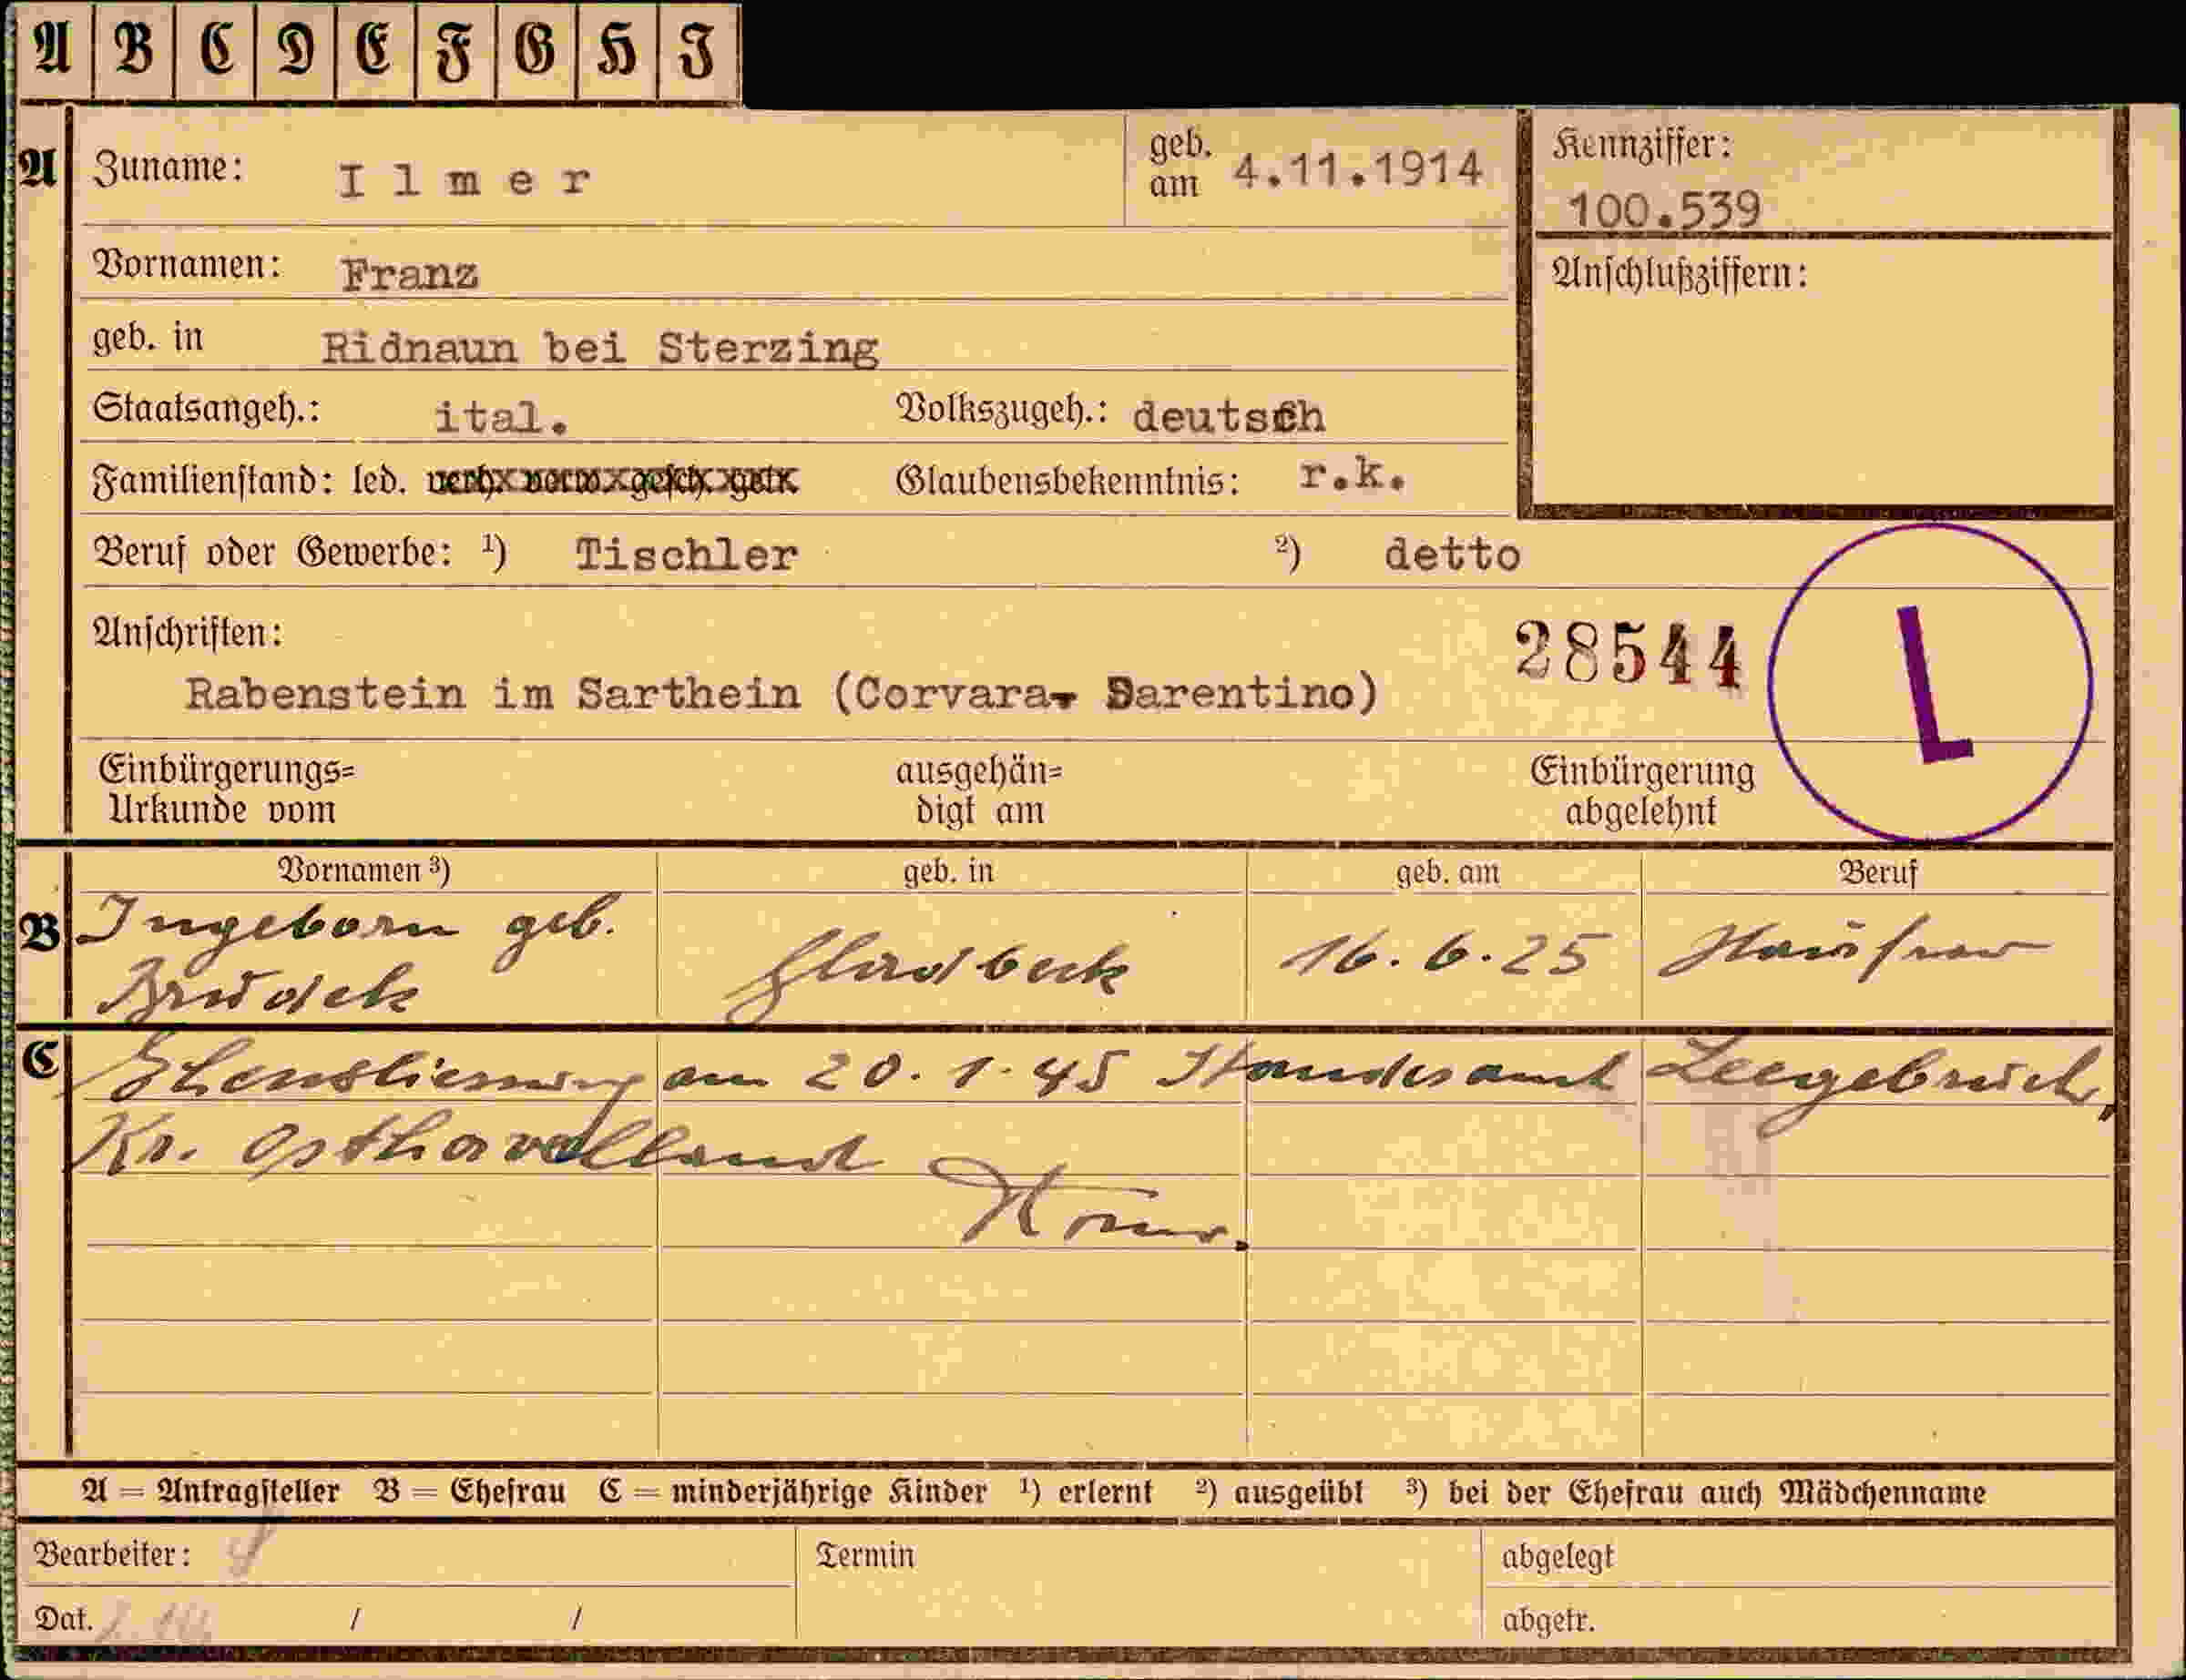 A B C D E F G H I
A Zuname: Ilmer geb. am 4.11.1914
Kennziffer:
100.539
Vornamen: Franz
Anschlußziffern:
geb. in Ridnaun bei Sterzing
Staatsangeh.: ital. Volkszugeh.: deutsch
Familienstand: led. verh. verw. gesch. getr. Glaubensbekenntnis: r.k.
Beruf oder Gewerbe: ¹) Tischler ²) detto
Anschriften:
28544
L
Rabenstein im Sarthein (Corvara- Sarentino)
Einbürgerungs= ausgehän= Einbürgerung
Urkunde vom digt am abgelehnt
Vornamen ³) geb. in geb. am Beruf
B Ingeborn geb.
Gladbeck 16.6.25 Hausfrau
C am 20.1.45 Standesamt Leegebruch,
Kr. Osthavelland
A = Antragsteller B = Ehefrau C = minderjährige Kinder ¹) erlernt ²) ausgeübt ³) bei der Ehefrau auch Mädchenname
Bearbeiter: Termin abgelegt
Dat. / / abgetr.